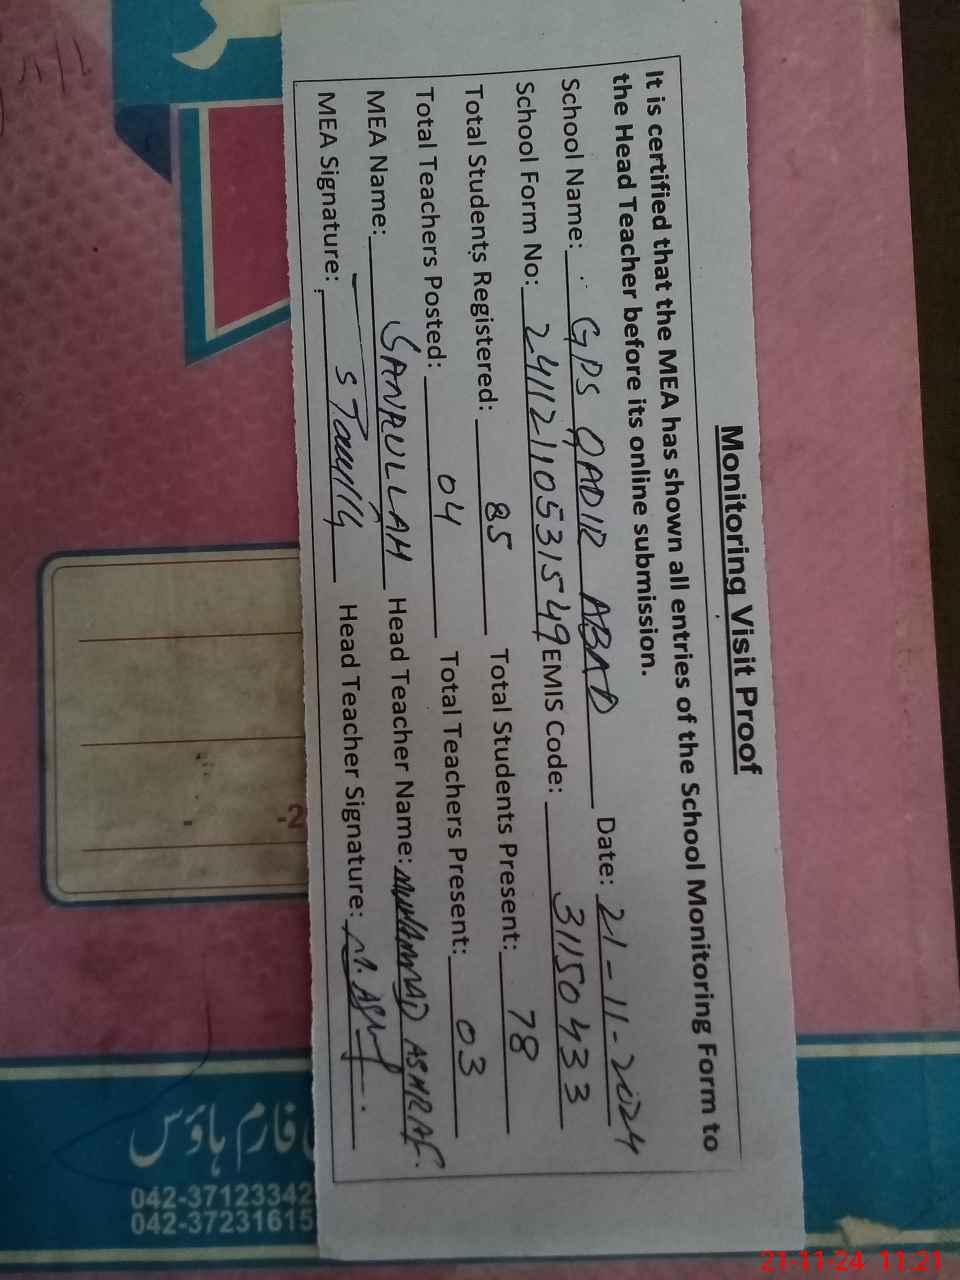 Monitoring Visit Proof
It is certified that the MEA has shown all entries of the School Monitoring Form to
the Head Teacher before its online submission.
School Name: GPS QADIR ABAD Date: 21-11-2024
School Form No: 24112110531549 EMIS Code: 31150433
Total Students Registered: 85 Total Students Present: 78
Total Teachers Posted: 04 Total Teachers Present: 03
MEA Name: SANAULLAH Head Teacher Name: MUHAMMAD ASHRAF.
MEA Signature: Head Teacher Signature: M. Ashraf.
-2
فارم ہاؤس
042-37123342
042-37231615
21-11-24 11:21